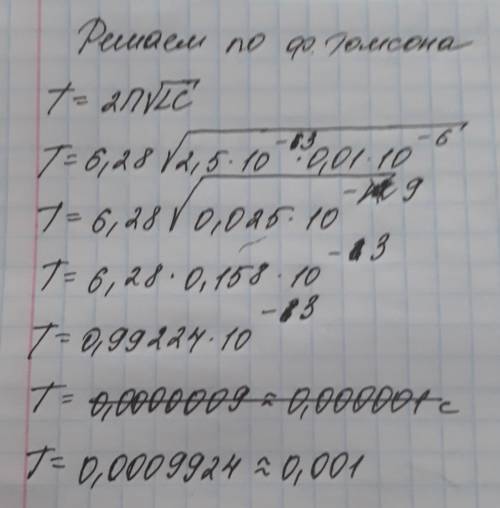 Решаем по ф. Томсона
T = 2П√LC
T = 6,28 √2,5·10⁻³·0,01·10⁻⁶
T = 6,28 √0,025·10⁻⁹
T = 6,28·0,158·10⁻³
T = 0,99224·10⁻³
T = 0,0000009 ≈ 0,000001 с
T = 0,0009924 ≈ 0,001